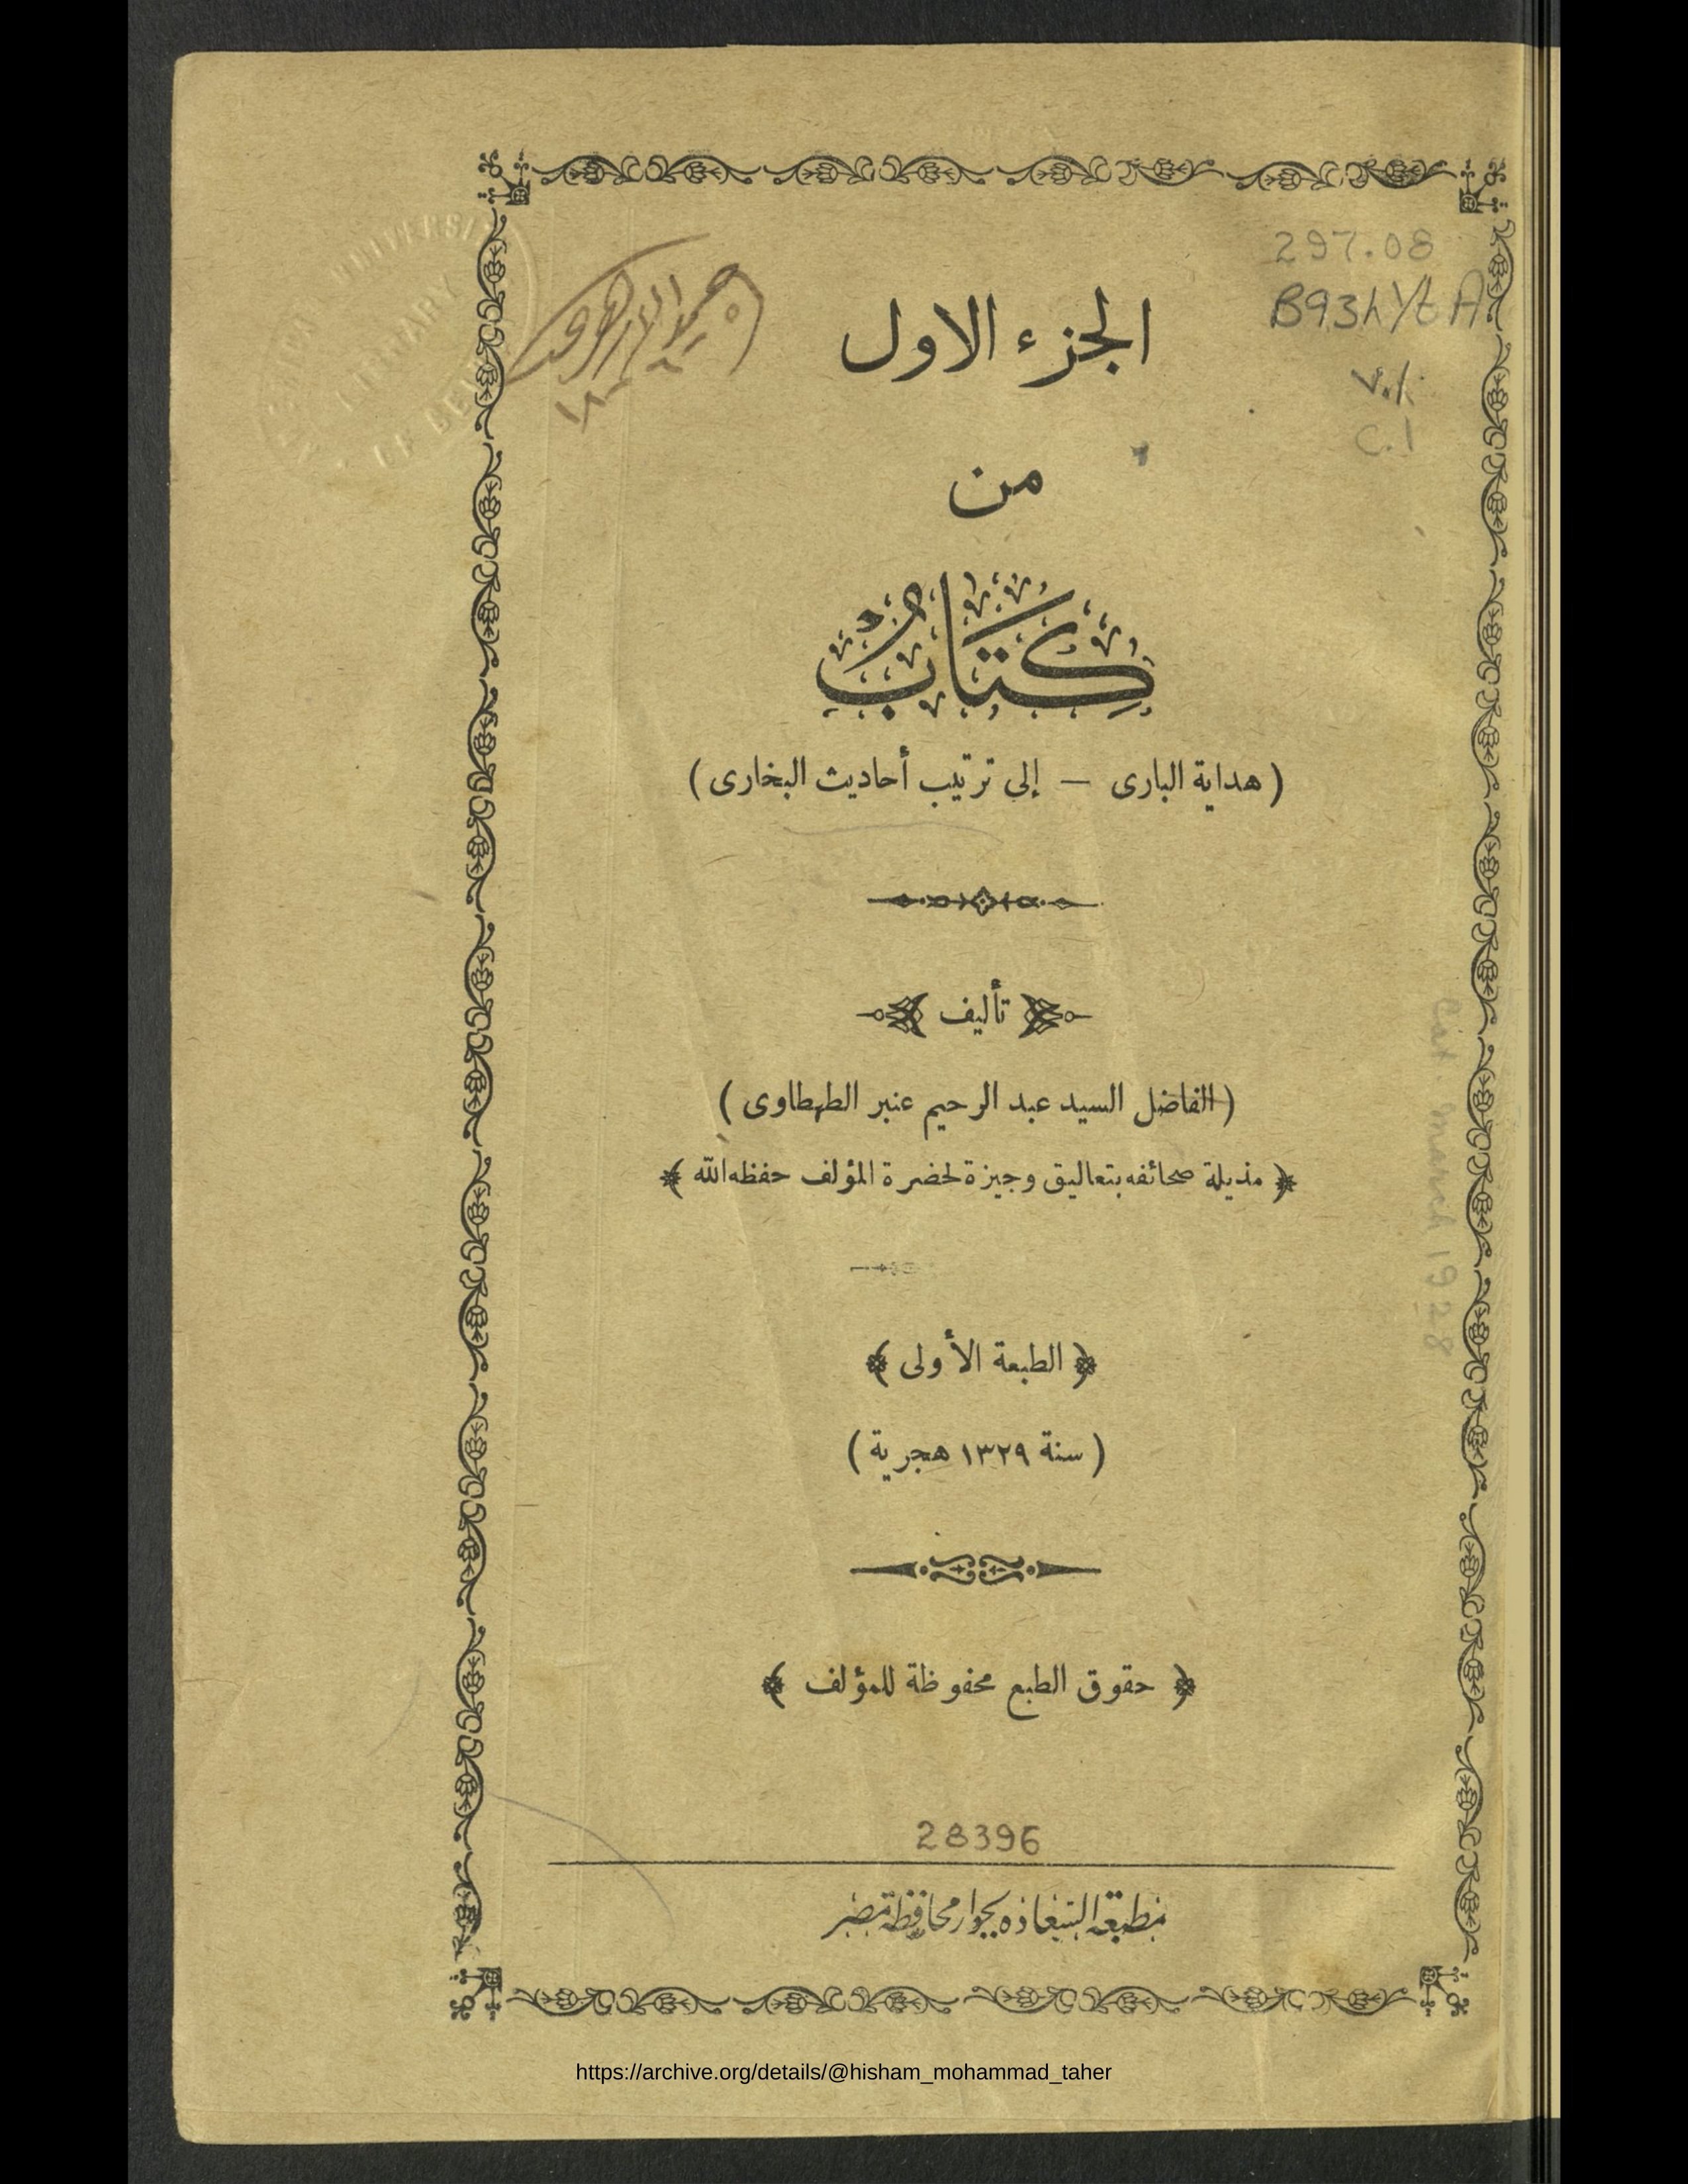 297.08
B93hYtA
v.1
c.1
الجزء الاول
من
كِتَابُ
( هداية البارى — إلى ترتيب أحاديث البخارى )
تأليف
( الفاضل السيد عبد الرحيم عنبر الطهطاوى )
﴿ مذيلة صحائفه بتعاليق وجيزة لحضرة المؤلف حفظه الله ﴾
Cat. March 1928
﴿ الطبعة الأولى ﴾
( سنة ١٣٢٩ هجرية )
﴿ حقوق الطبع محفوظة للمؤلف ﴾
28396
مطبعة السعادة بجوار محافظة مصر
https://archive.org/details/@hisham_mohammad_taher